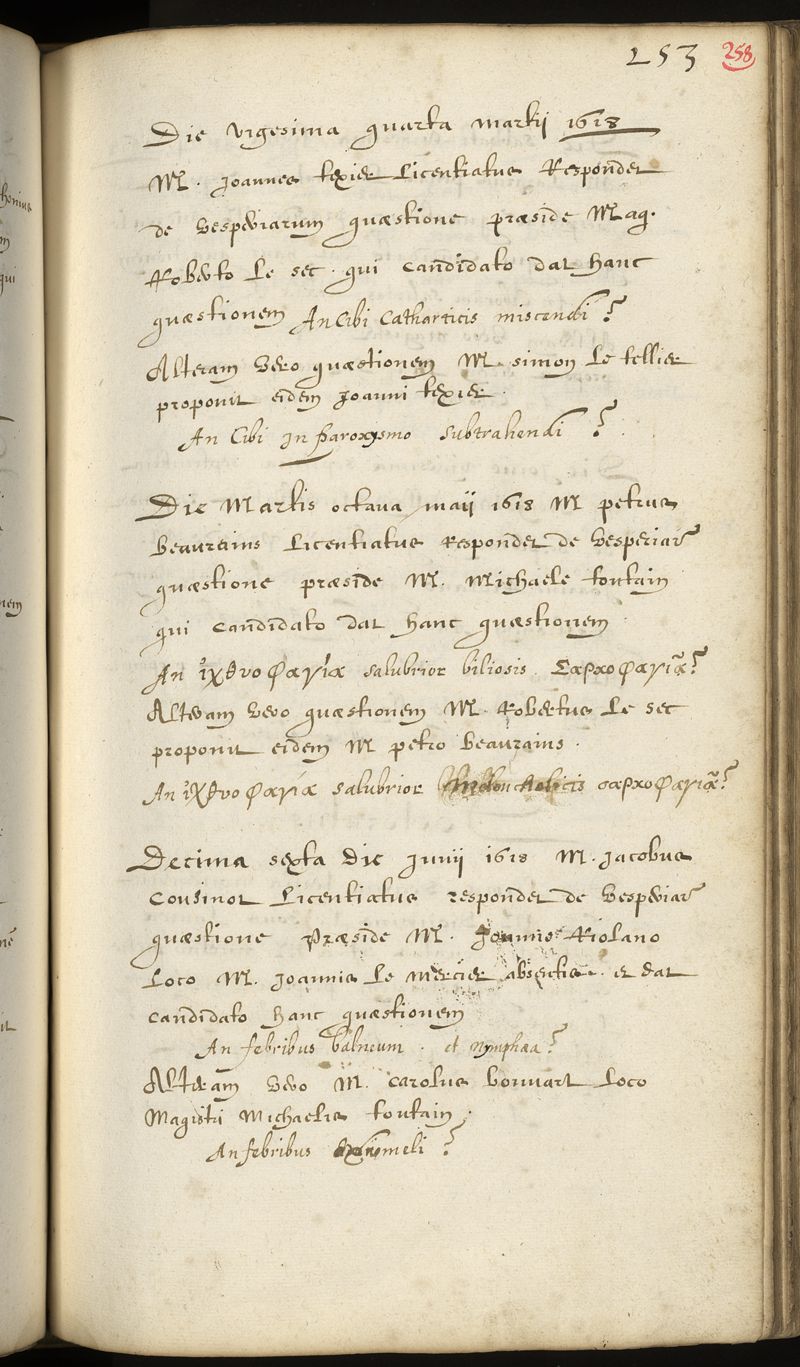 253 258
Die vigesima quarta martij 1618
M. Joannes texier Licentiatus Respondet
de vesperiarum quæstione præside Mag.
Roberto Le sec. qui candidato dat hanc
quæstionem An Cibi Catharticis miscendi?
Alteram vero quæstionem M. simon Le tellier
proponit eidem Joanni texier.
An Cibi in paroxysmo subtrahendi?
Die Martis octava maij 1618 M petrus
Beaurains Licentiatus Respondet de vesperiar
quæstione præside M. Michaele toutain
qui candidato dat hanc quæstionem.
An ἰχθυοφαγία salubrior biliosis Σαρκοφαγίᾳ?
Alteram vero quæstionem M. Robertus Le sec
proponit eidem M petro Beaurains.
An ἰχθυοφαγία salubrior Melancholicis σαρκοφαγίᾳ?
Decima sexta die Junij 1618 M. Jacobus
Cousinot Licentiatus respondet de vesperiar
quæstione Præside M. Joanne Riolano
Loco M. Joannis Le mercier absentis. et dat
candidato hanc quæstionem
An febribus balneum. et nymphæa?
Alteram vero M. carolus bouvart Loco
Magistri Michaelis toutain.
An febribus oximeli?